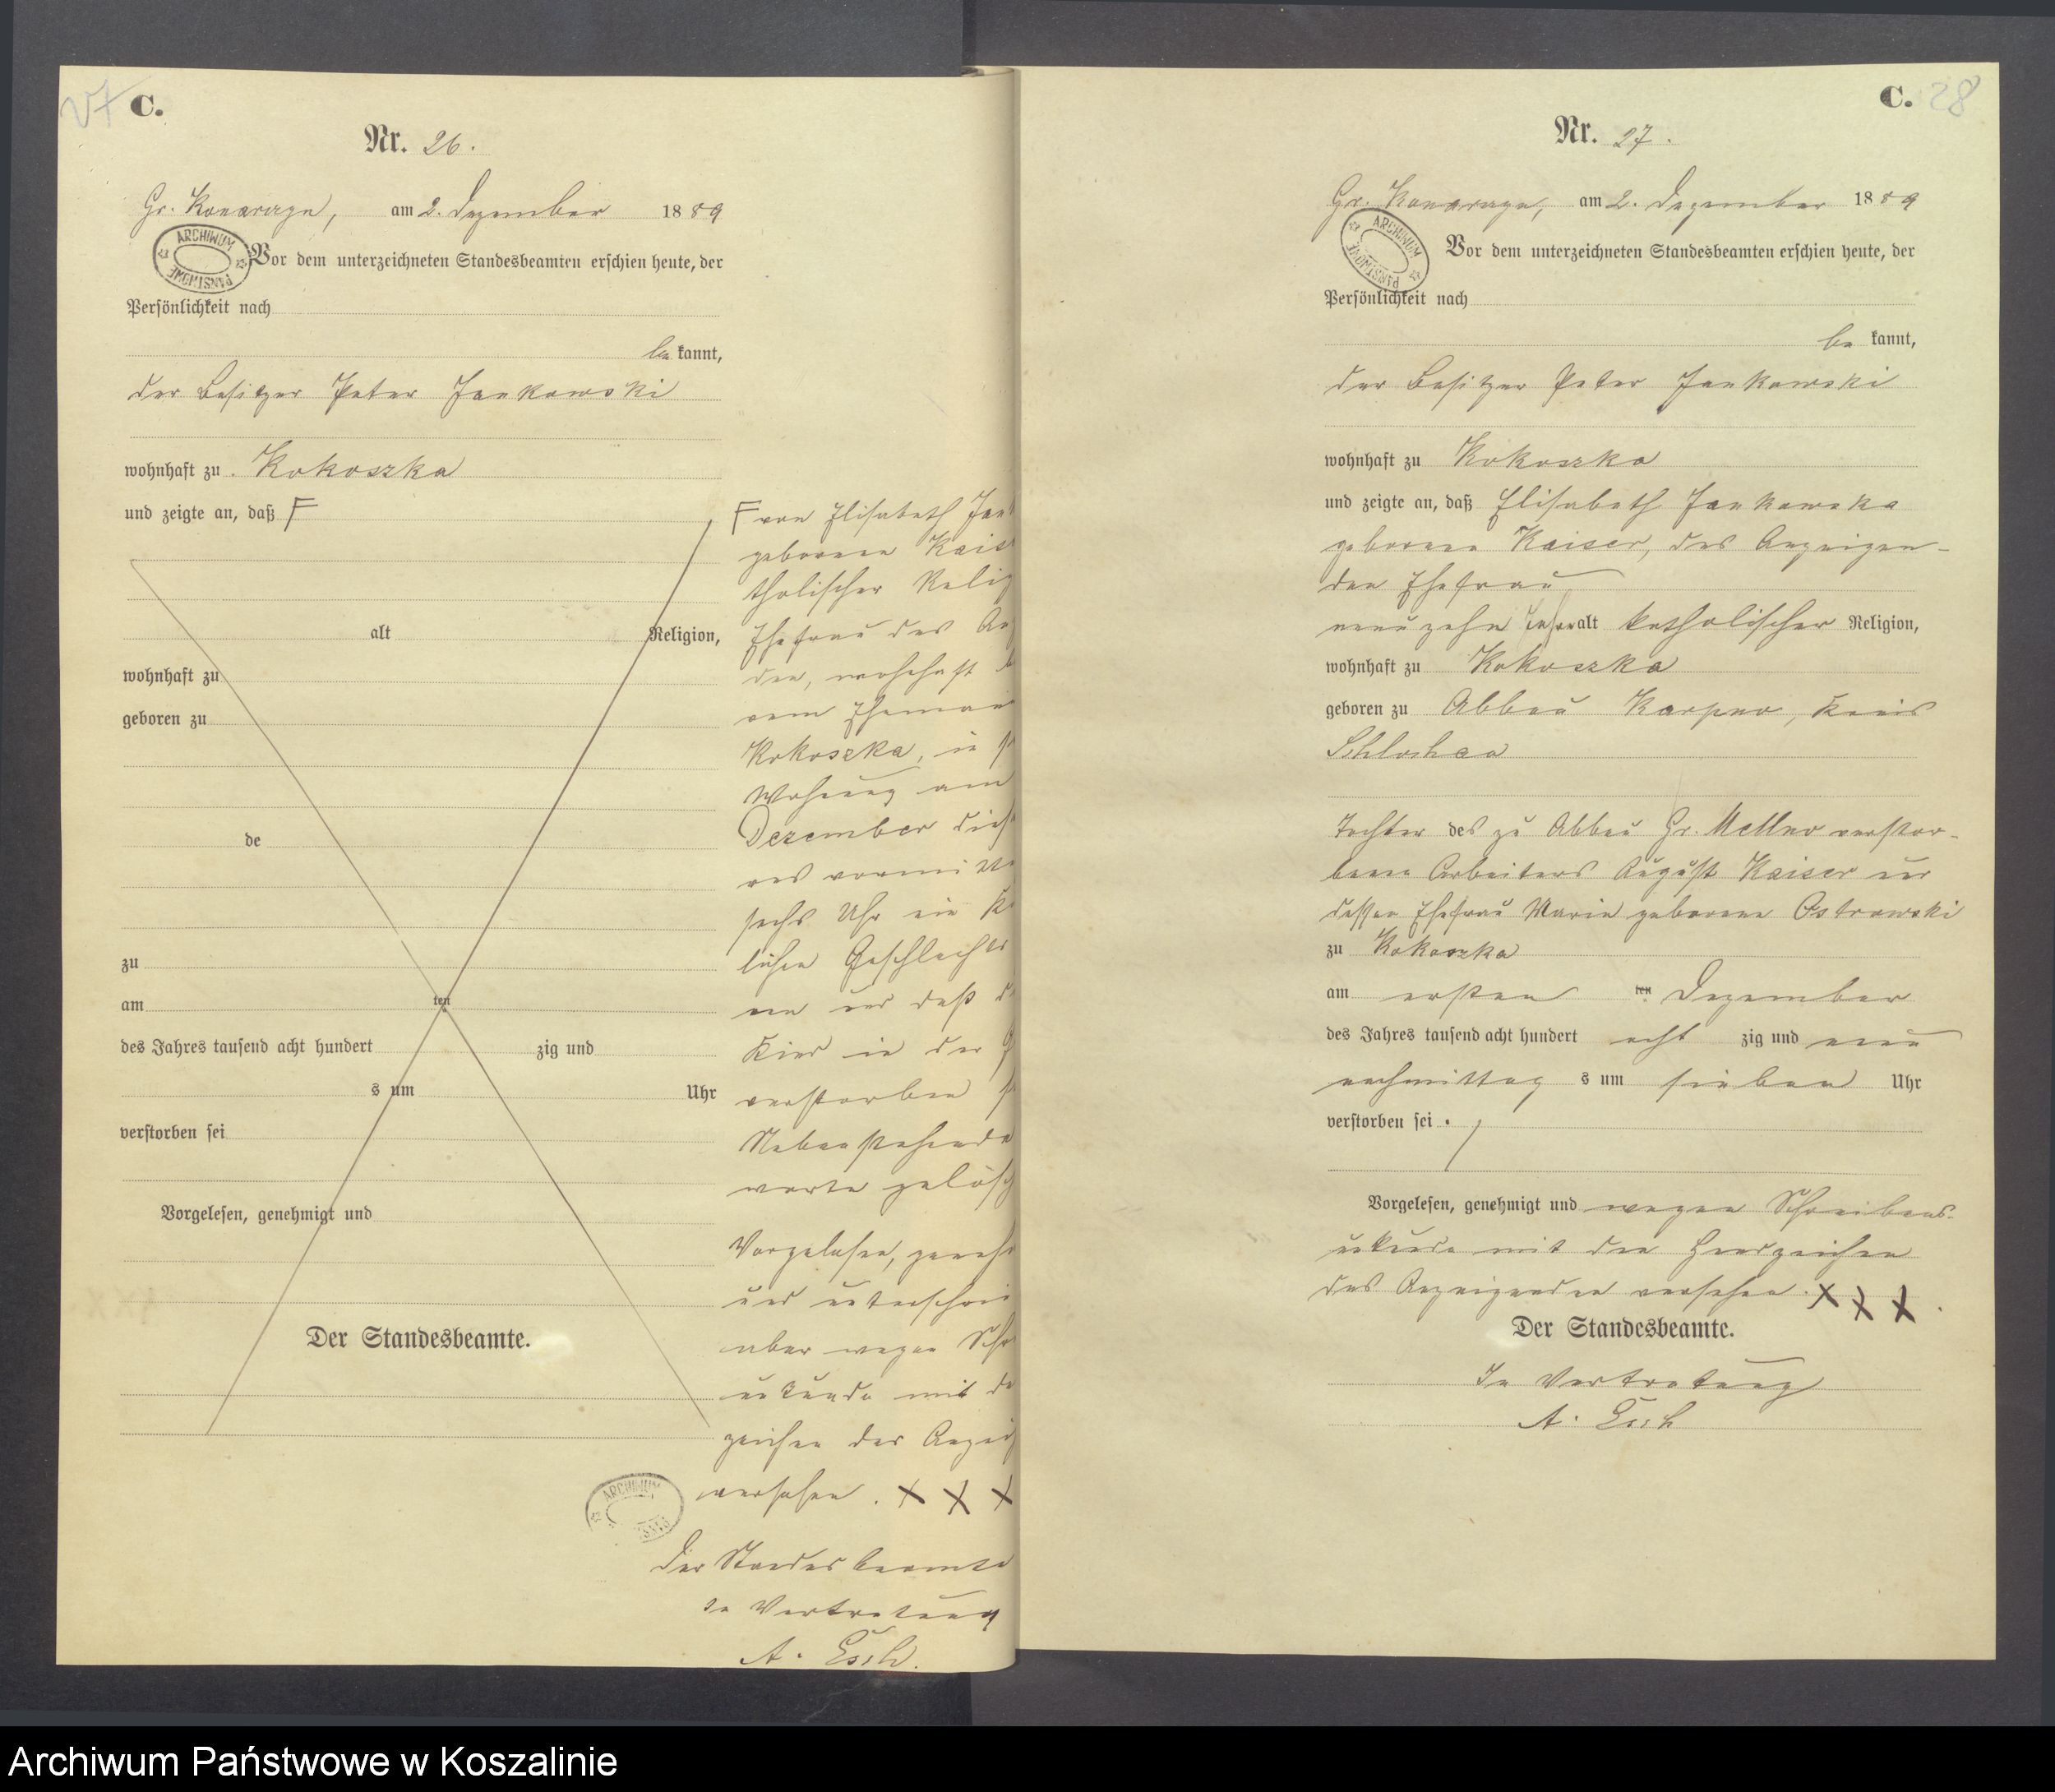 C.
Nr. 26.
Gr. Konarczyn, am 2. Dezember 1889
ARCHIWUM PAŃSTWOWE
Vor dem unterzeichneten Standesbeamten erschien heute, der
Persönlichkeit nach
be kannt,
der Besitzer Peter Jankowski
wohnhaft zu Kokoszka
und zeigte an, daß F
alt Religion,
wohnhaft zu
geboren zu
de
zu
am ten
des Jahres tausend acht hundert zig und
s um Uhr
verstorben sei
Vorgelesen, genehmigt und
Der Standesbeamte.
F von Elisabeth Jank
geborene Kais
tholischer Relig
Ehefrau des An
den, wohnhaft b
vom Eheman
Kokoszka, in
Wohnung am
Dezember dies
res vormitta
sechs Uhr ein K
lichen Geschlechts
ren und daß d
Kind in der G
verstorben s
Nebenstehende
worte gelösch
Vorgelesen, geneh
und unterschrie
aber wegen Schr
unkunde mit d
zeichen des Anzeig
versehen. X X X
Der Standesbeamte
In Vertretung
A. Esch.
ARCHIWUM
C. 28
Nr. 27.
Gr. Konarczyn, am 2. Dezember 1889
ARCHIWUM PAŃSTWOWE
Vor dem unterzeichneten Standesbeamten erschien heute, der
Persönlichkeit nach
be kannt,
der Besitzer Peter Jankowski
wohnhaft zu Kokoszka
und zeigte an, daß Elisabeth Jankowska
geborene Kaiser, des Anzeigen-
den Ehefrau
neunzehn Jahre alt katholischer Religion,
wohnhaft zu Kokoszka
geboren zu Abbau Karpno, Kreis
Schlochau
Tochter des zu Abbau Gr. verstor-
bene Arbeiters August Kaiser und
dessen Ehefrau Marie geborene Ostrowski
zu Kokoszka
am ersten ten Dezember
des Jahres tausend acht hundert acht zig und neun
nachmittag s um sieben Uhr
verstorben sei.
Vorgelesen, genehmigt und wegen Schreibens-
unkunde mit den Handzeichen
des Anzeigenden versehen. X X X.
Der Standesbeamte.
In Vertretung
A. Esch
Archiwum Państwowe w Koszalinie